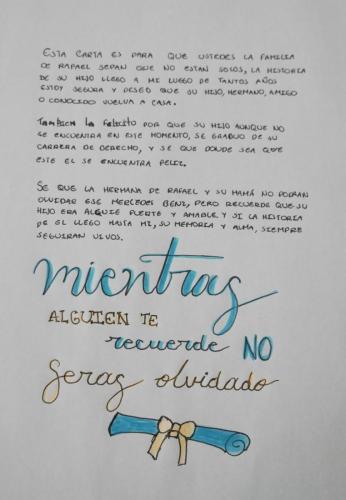 ESTA CARTA ES PARA QUE USTEDES LA FAMILIA
DE RAFAEL SEPAN QUE NO ESTAN SOLOS, LA HISTORIA
DE SU HIJO LLEGO A MI LUEGO DE TANTOS AÑOS
ESTOY SEGURA Y DESEO QUE SU HIJO, HERMANO, AMIGO
O CONOCIDO VUELVA A CASA.
TAMBIEN LA FELICITO POR QUE SU HIJO AUNQUE NO
SE ENCUENTRA EN ESTE MOMENTO, SE GRADUO DE SU
CARRERA DE DERECHO, Y SE QUE DONDE SEA QUE
ESTE EL SE ENCUENTRA FELIZ.
SE QUE LA HERMANA DE RAFAEL Y SU MAMÁ NO PODRAN
OLVIDAR ESE MERCEDES BENZ, PERO RECUERDE QUE SU
HIJO ERA ALGUIE FUERTE Y AMABLE Y SI LA HISTORIA
DE EL LLEGO HASTA MI, SU MEMORIA Y ALMA, SIEMPRE
SEGUIRAN VIVOS.
mientras
ALGUIEN TE
recuerde NO
Seras olvidado